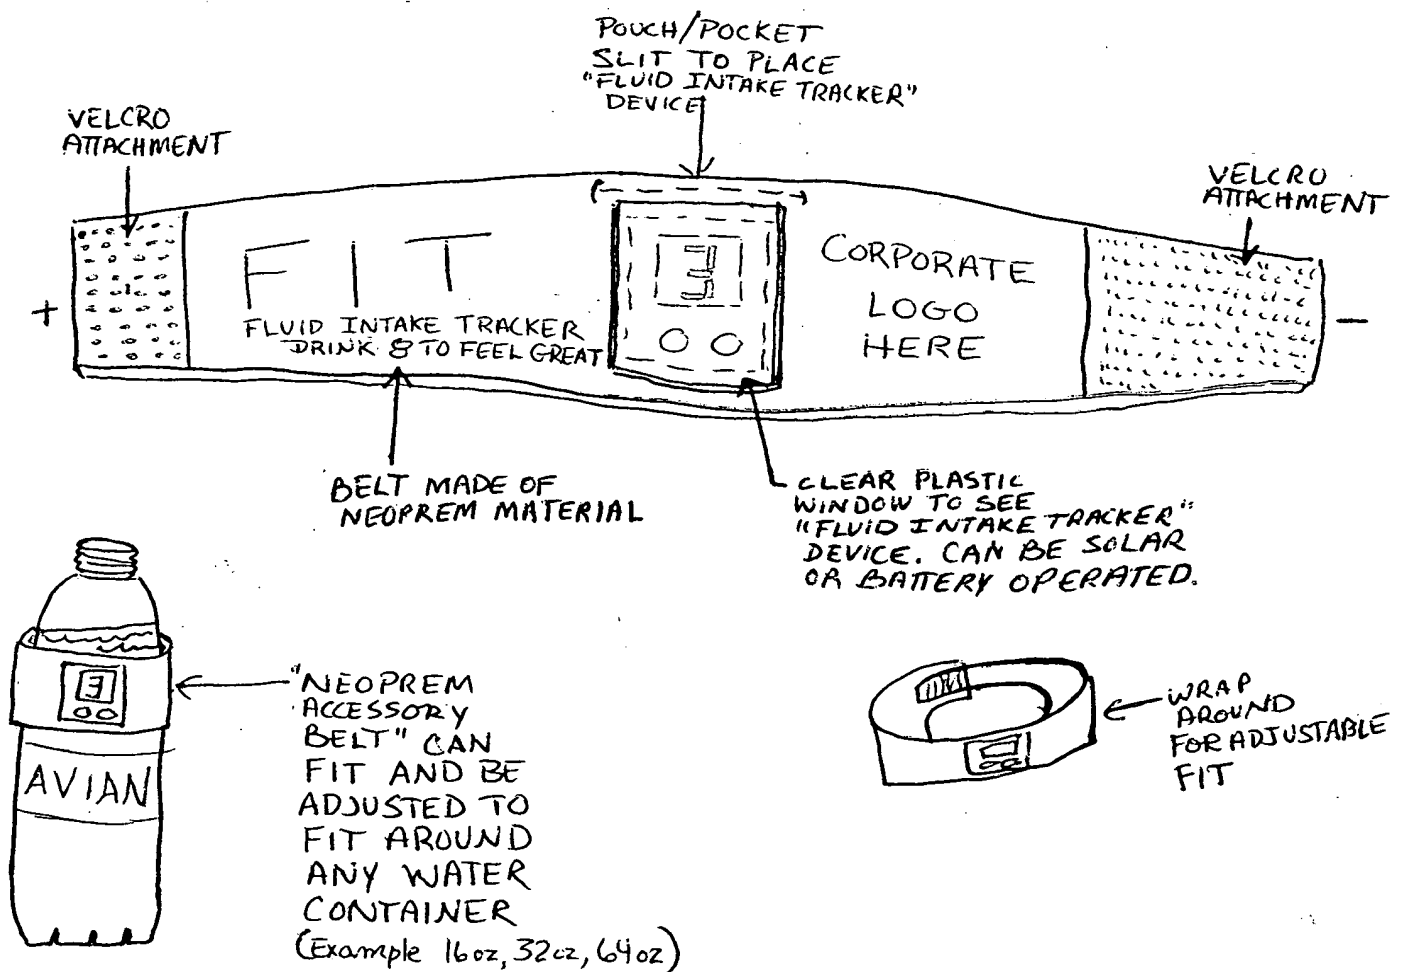 POUCH/POCKET
SLIT TO PLACE
"FLUID INTAKE TRACKER"
DEVICE
VELCRO
ATTACHMENT
VELCRO
ATTACHMENT
+
FIT
FLUID INTAKE TRACKER
DRINK 8 TO FEEL GREAT
3
CORPORATE
LOGO
HERE
-
BELT MADE OF
NEOPREM MATERIAL
CLEAR PLASTIC
WINDOW TO SEE
"FLUID INTAKE TRACKER"
DEVICE. CAN BE SOLAR
OR BATTERY OPERATED.
3
AVIAN
"NEOPREM
ACCESSORY
BELT" CAN
FIT AND BE
ADJUSTED TO
FIT AROUND
ANY WATER
CONTAINER
(Example 16oz, 32oz, 64oz)
WRAP
AROUND
FOR ADJUSTABLE
FIT